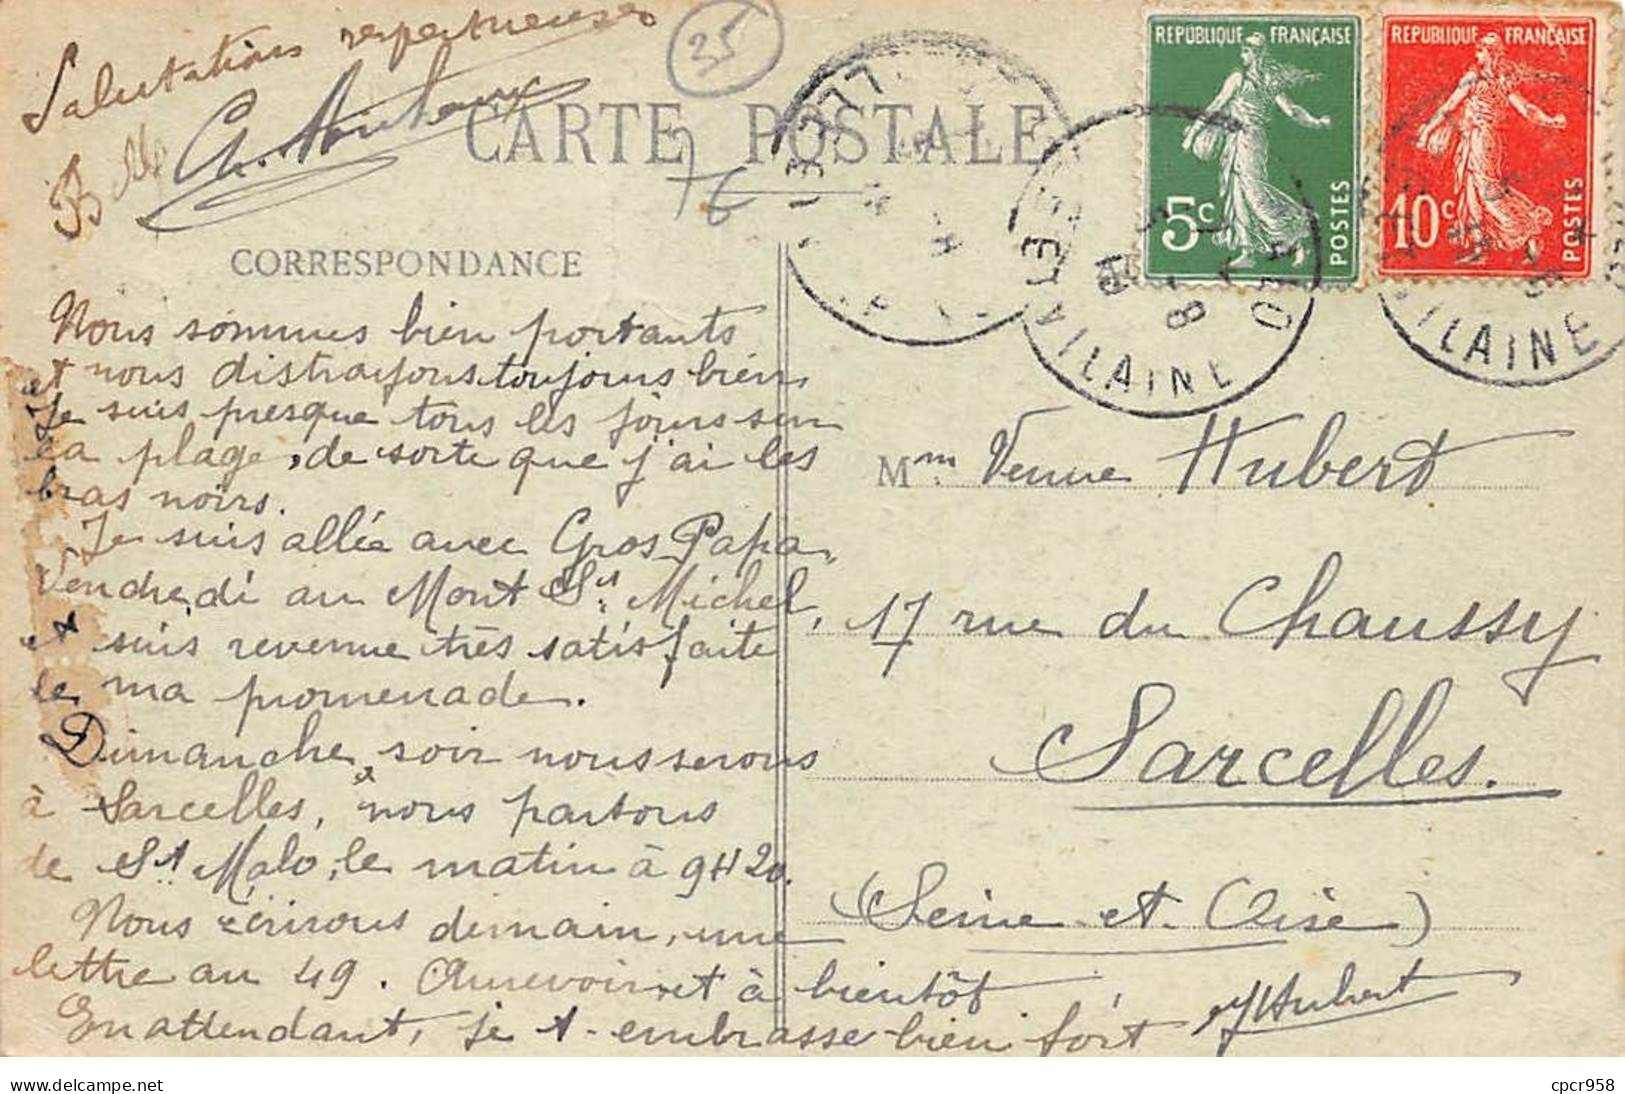 Salutations respectueuses
35
CARTE POSTALE
76
CORRESPONDANCE
RÉPUBLIQUE FRANÇAISE
5c
POSTES
RÉPUBLIQUE FRANÇAISE
10c
POSTES
ILLE-ET-VILAINE
VILAINE
Nous sommes bien portants
et nous distrayons toujours bien
Je suis presque tous les jours sur
la plage, de sorte que j'ai les
bras noirs.
Je suis allée avec Gros Papa
Vendredi au Mont St. Michel,
et suis revenue très satisfaite
de ma promenade.
Dimanche soir nous serons
à Sarcelles, nous partons
de St Malo, le matin à 9H20.
Nous écrirons demain, une
lettre au 49. Aurevoir et à bientôt
En attendant, je t'embrasse bien fort
YHubert
Mme Veuve Hubert
17 rue du Chaussy
Sarcelles.
(Seine et Oise)
cpcr958